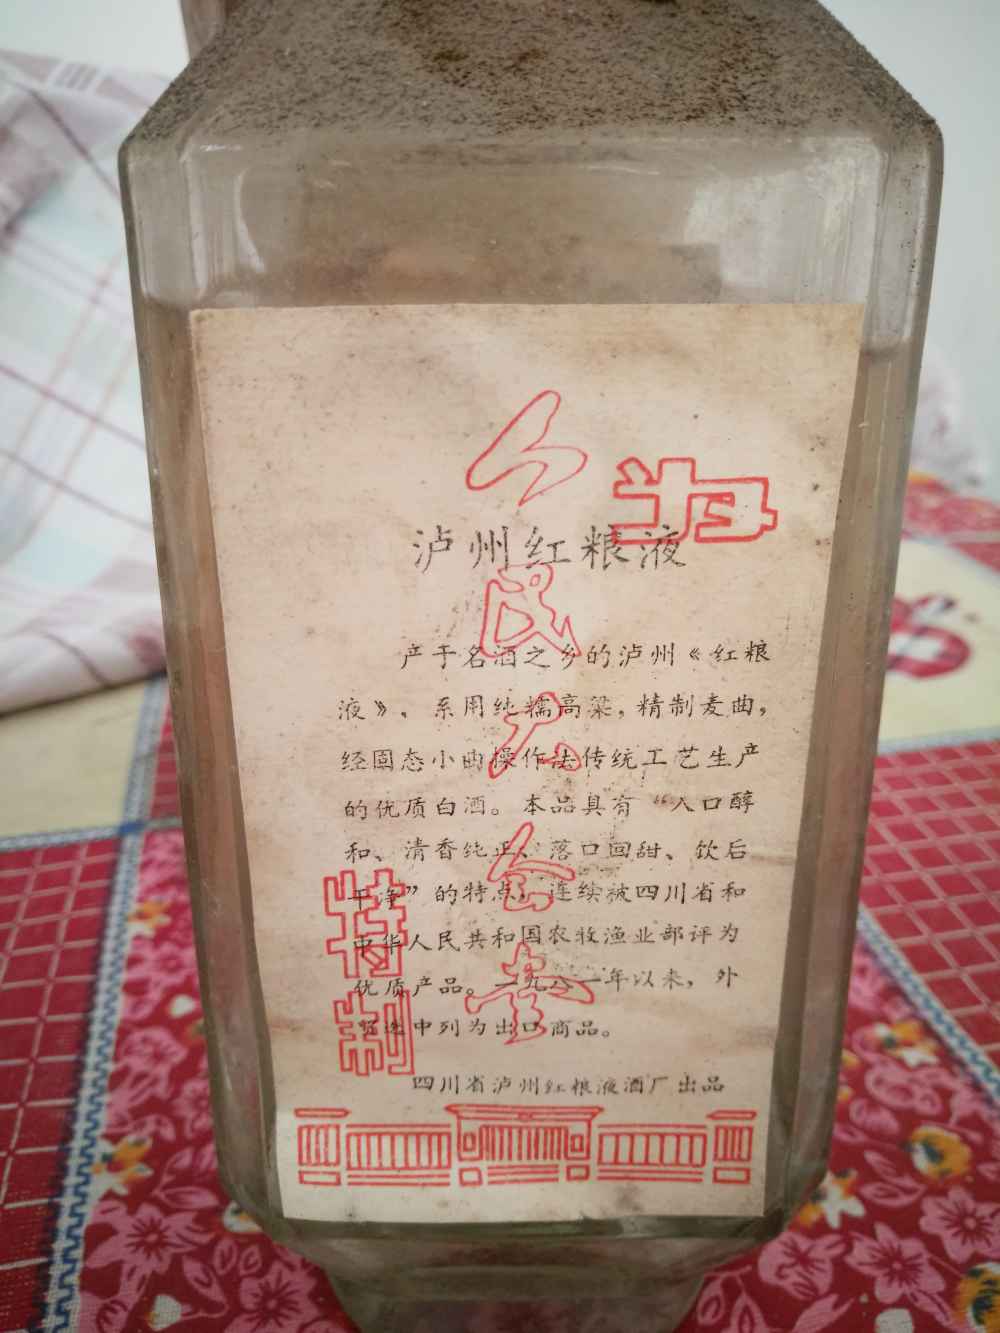 泸州红粮液
产于名酒之乡的泸州《红粮
液》，系用纯糯高粱，精制麦曲，
经固态小曲操作法传统工艺生产
的优质白酒。本品具有“入口醇
和、清香纯正、落口回甜、饮后
干净”的特点，连续被四川省和
中华人民共和国农牧渔业部评为
优质产品。一九八一年以来，外
贸选中列为出口商品。
四川省泸州红粮液酒厂出品
人民大会堂
特制